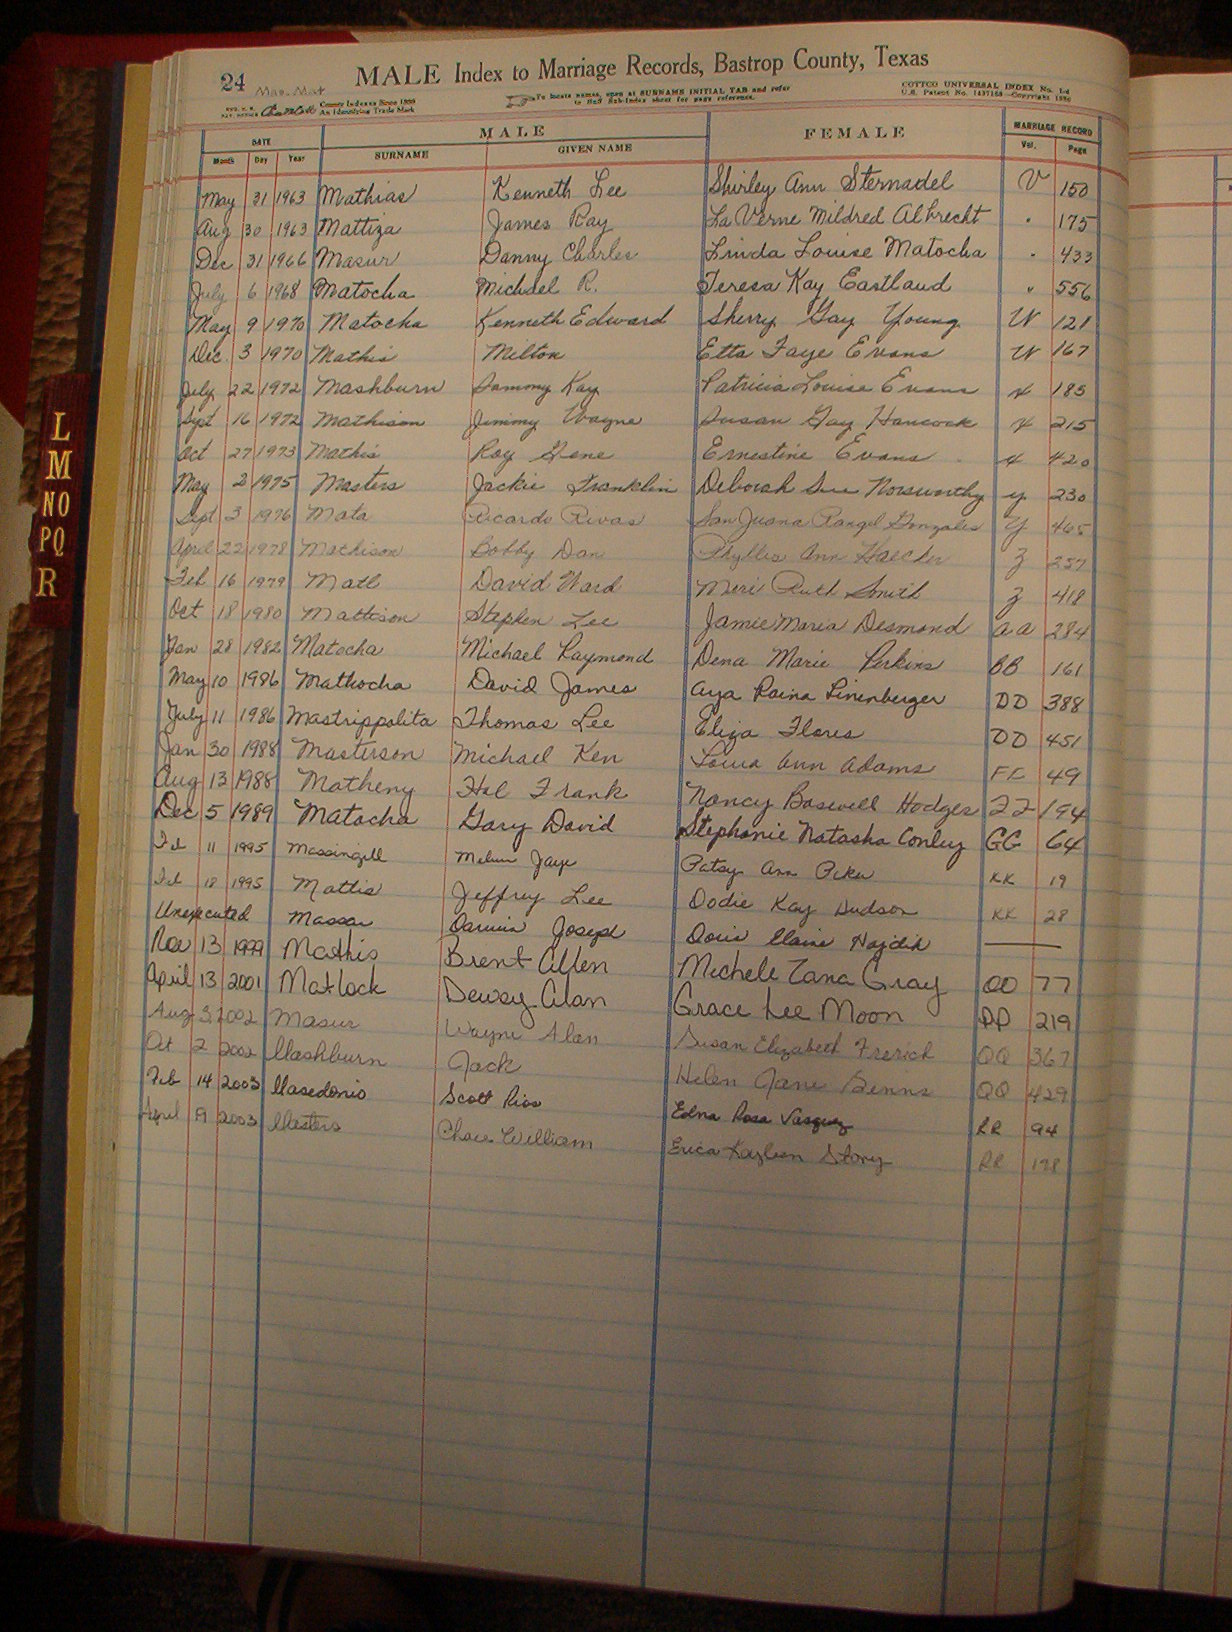 24 Mas. Mat MALE Index to Marriage Records, Bastrop County, Texas
County Indexes Since 1888
An Identifying Trade Mark
To locate names, open at SURNAME INITIAL TAB and refer
to Sub-Index sheet for page reference.
COTTCO UNIVERSAL INDEX No. 1-4
U.S. Patent No.
DATE MALE FEMALE MARRIAGE RECORD
Month Day Year SURNAME GIVEN NAME Vol. Page
May 31 1963 Mathias Kenneth Lee Shirley Ann Sternadel V 150
Aug 30 1963 Mattiza James Ray La Verne Mildred Albrecht " 175
Dec 31 1966 Masur Danny Charles Linda Louise Matocha " 433
July 6 1968 Matocha Michael R. Teresa Kay Eastland " 556
May 9 1970 Matocha Kenneth Edward Sherry Gay Young W 121
Dec. 3 1970 Mathis Milton Etta Faye Evans W 167
July 22 1972 Mashburn Sammy Kay Patricia Louise Evans X 185
Sept 16 1972 Mathison Jimmy Wayne Susan Gay Hancock X 215
Oct 27 1973 Mathis Roy Gene Ernestine Evans X 420
May 2 1975 Masters Jackie Franklin Deborah Sue Norsworthy Y 230
Sept 3 1976 Mata Ricardo Rivas San Juana Rangel Gonzales Y 465
April 22 1978 Mathison Bobby Dan Phyllis Ann Haecker Z 257
Feb 16 1979 Matl David Ward Meri Ruth Smith Z 418
Oct 18 1980 Mattison Stephen Lee Jamie Maria Desmond AA 284
Jan 28 1982 Matocha Michael Raymond Dena Marie Perkins BB 161
May 10 1986 Mathocha David James Aya Raina Linenberger DD 388
July 11 1986 Mastrippolita Thomas Lee Eliza Flores DD 451
Jan 30 1988 Masterson Michael Ken Ann Adams FF 49
Aug 13 1988 Matheny Hal Frank Nancy Boswell Hodges FF 194
Dec 5 1989 Matocha Gary David Stephanie Natasha Conley GG 64
Feb 11 1995 Massingill Melvin Jaye Patsy Ann KK 19
Feb 18 1995 Mattis Jeffrey Lee Dodie Kay Hudson KK 28
Unexecuted Massar Darwin Joseph Doris Elaine Hajdik
Nov 13 1999 Mathis Brent Allen Michele Zana Gray OO 77
April 13 2001 Matlock Dewey Alan Grace Lee Moon PP 219
Aug 3 2002 Masur Wayne Alan Susan Elizabeth Frerich QQ 367
Oct 2 2002 Mashburn Jack Helen Jane Benns QQ 429
Feb 14 2003 Masedonio Scott Rios Edna Rosa Vasquez RR 94
April 9 2003 Masters Chace William Erica Kayleen Story RR 178
L
M
NO
PQ
R